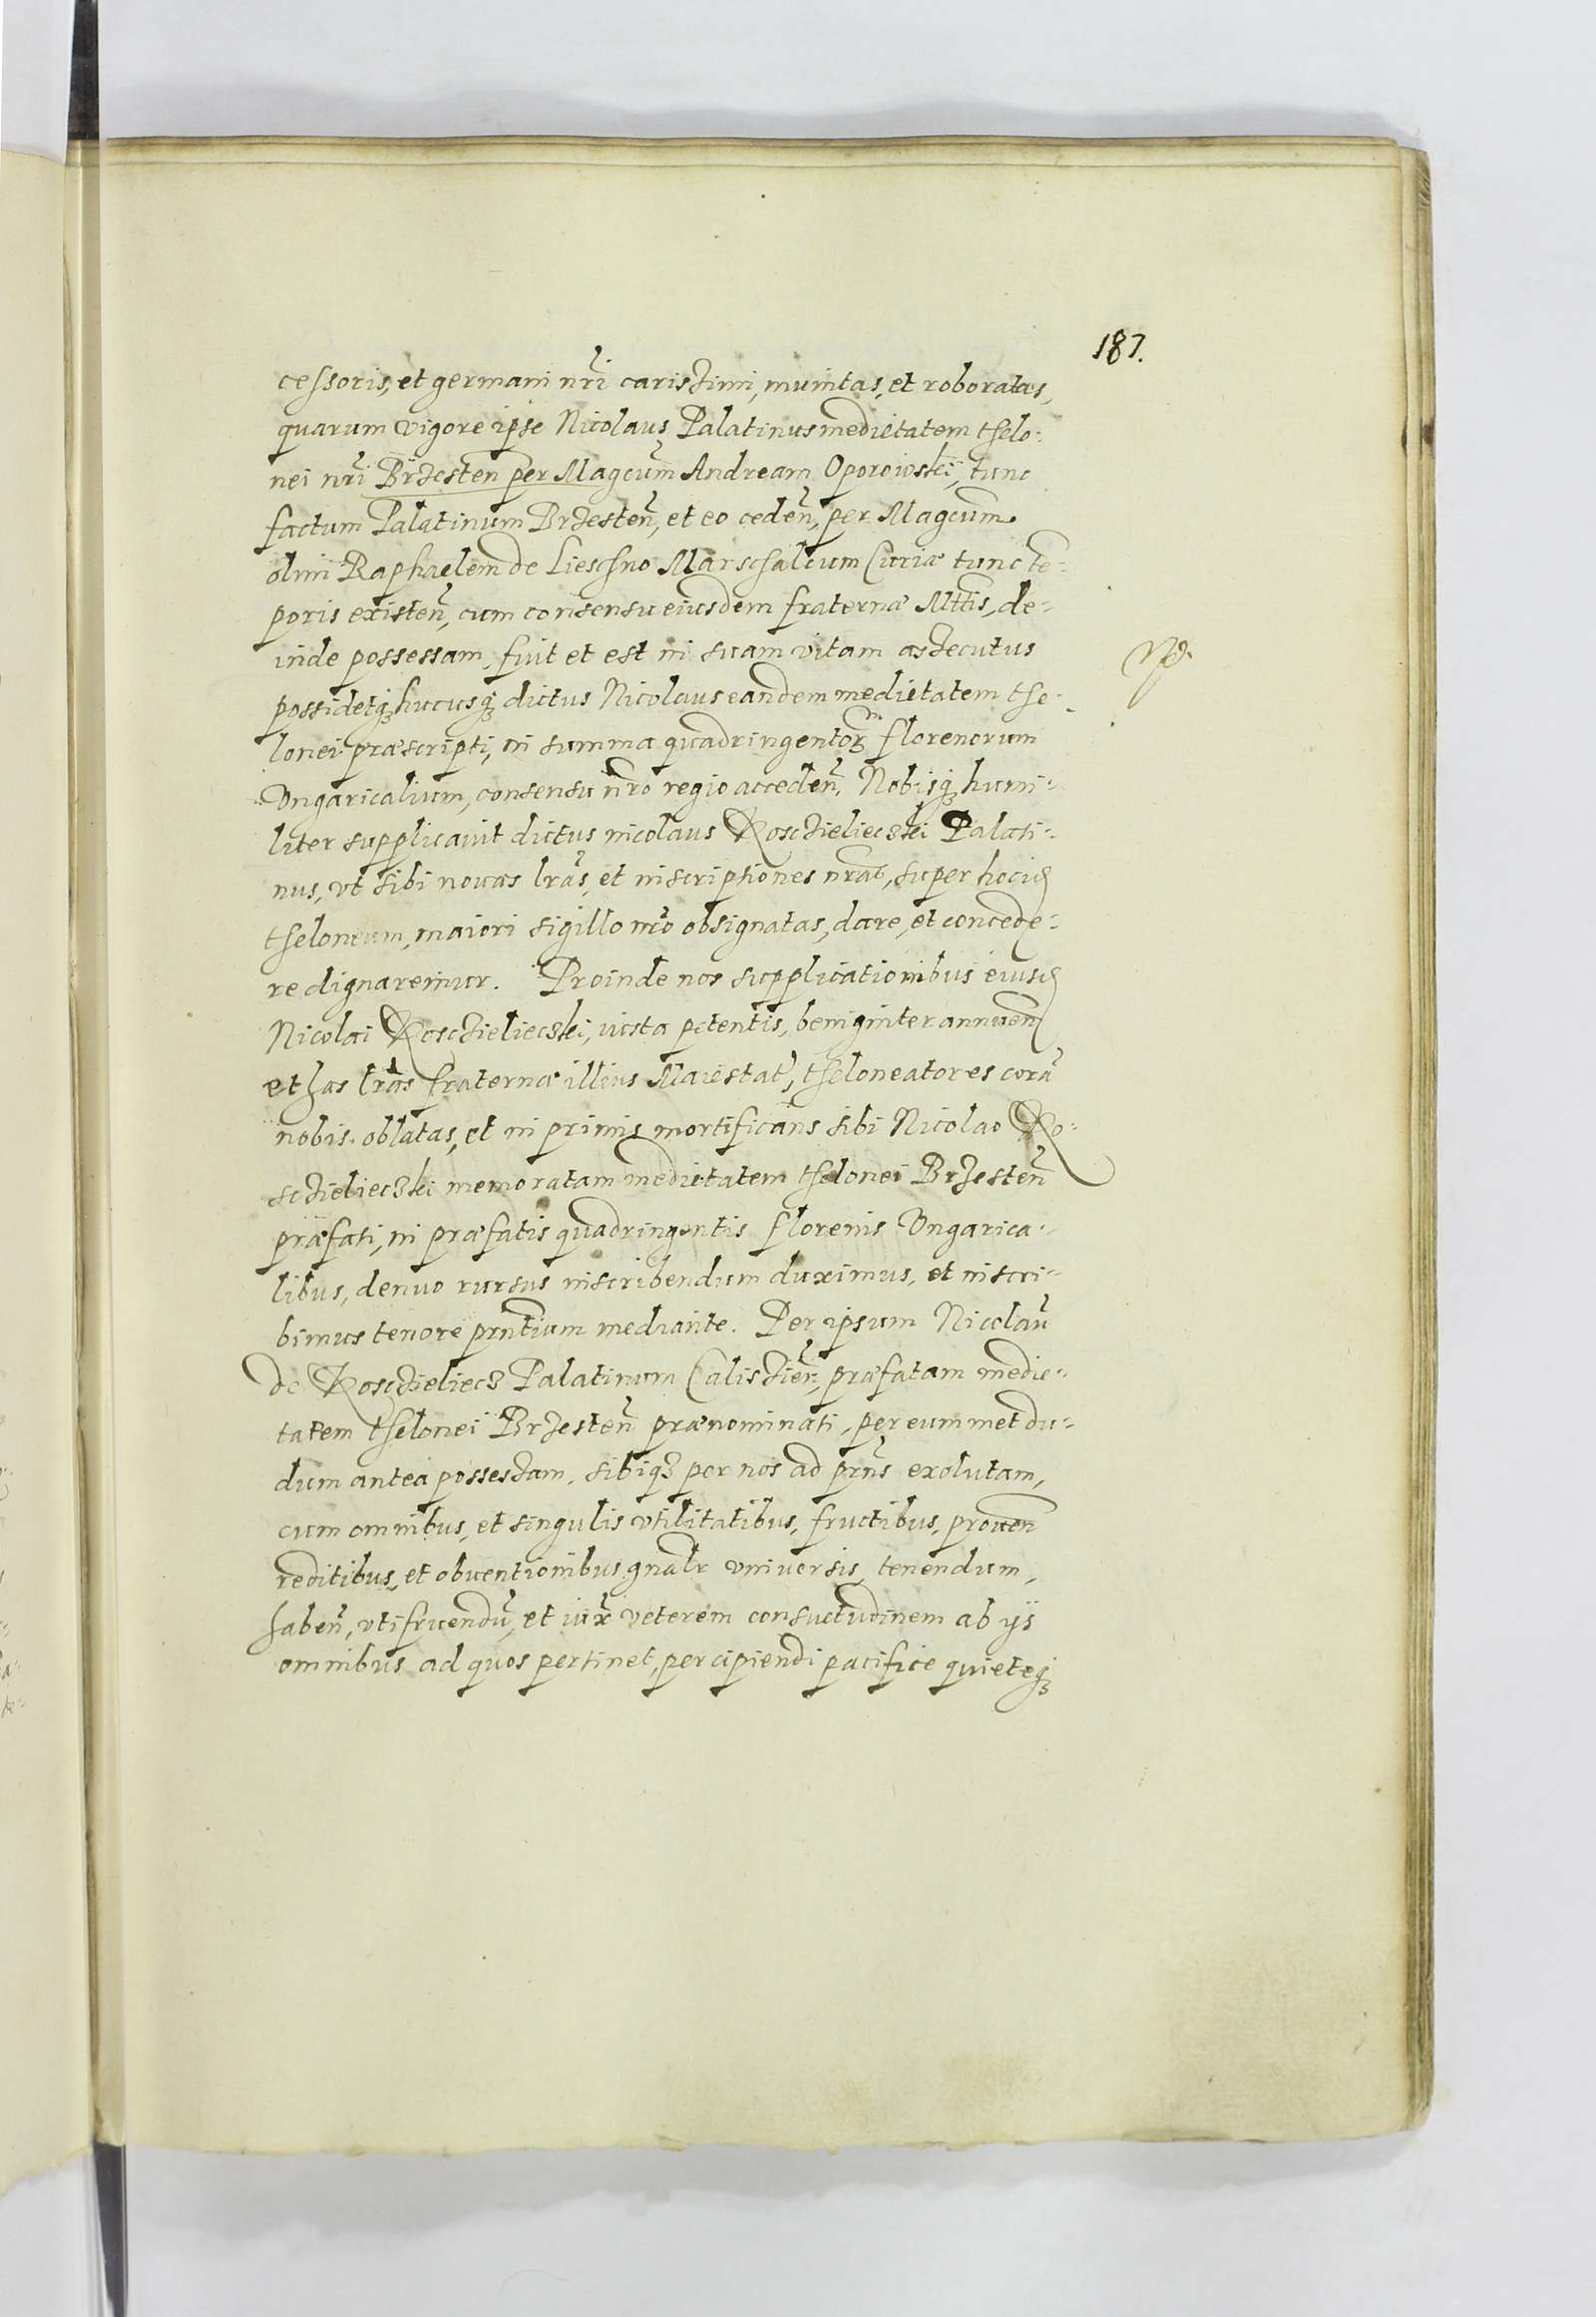 187.
cessoris, et germani nr̃i carissimi, munitas, et roboratas,
quarum vigore ipse Nicolaus Palatinus medietatem thelo-
nei nr̃i Brzesten̄ per Magcum̃ Andream Oporowski, tunc
factum Palatinum Brzesten̄, et eo ceden̄, per Magcum̄
olim Raphaelem de Lieschno Marschalcum Curiæ tunc te-
poris existen̄, cum consensu eiusdem fraternæ Mttis, de-
inde possessam, fuit et est in suam vitam assecutus
possidetq₃ hucusq₃ dictus Nicolaus eandem medietatem the-
lonei præscripti, in summa quadringentor̄ florenorum
Ungaricalium, consensu nr̃o regio acceden̄, Nobisq₃ humi-
liter supplicavit dictus nicolaus Kosczieliecski Palati-
nus, vt sibi novas lr̃as, et inscriptiones nr̃as, super hociꝫ
theloneum, maiori sigillo nr̃o obsignatas, dare, et concede-
re dignaremur. Proinde nos supplicationibus eiusꝫ
Nicolai Kosczieliecski, iusta petentis, benigniter annuen̄
et has lr̃as fraternæ illius Maiestat̃, theloneatores corā
nobis oblatas, et in primis mortificans sibi Nicolao Ko-
sczieliecski memoratam medietatem thelonei Brzesten̄
præfati, in præfatis quadringentis florenis Ungarica-
libus, denuo rursus inscribendum duximus, et inscri-
bimus tenore prn̄tium mediante. Per ipsum Nicolaū
de Kosczieliecz Palatinum Calissien̄, præfatam medie-
tatem thelonei Brzesten̄ prænominati, per eummet du-
dum antea possessam, sibiq₃ per nos ad prn̄s exolutam,
cum omnibus, et singulis vtilitatibus, fructibus, proven̄
reditibus, et obventionibus gnalr vniversis, tenendum,
haben̄, vtifruendū, et iux̃ veterem consuetudinem ab ijs
omnibus ad quos pertinet, percipiendi pacifice quieteq₃